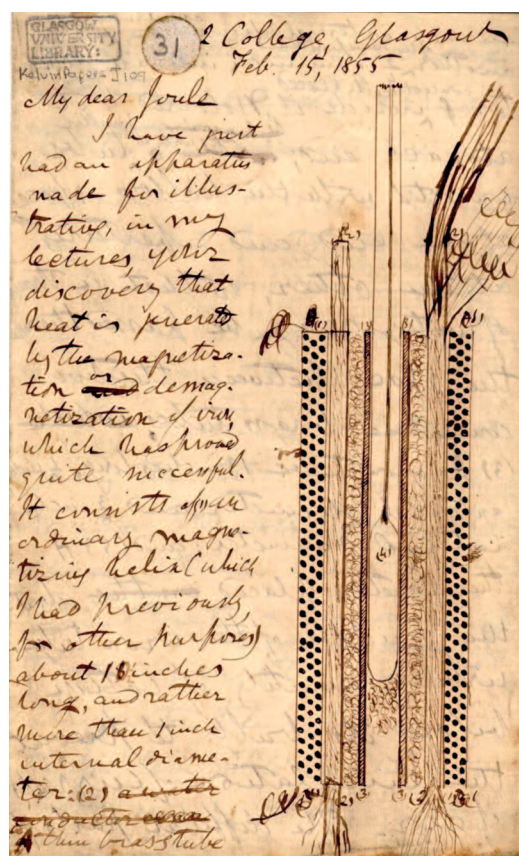 GLASGOW
UNIVERSITY
LIBRARY:
Kelvin Papers J109
31
2 College, Glasgow
Feb. 15, 1855
My dear Joule
I have just
had an apparatus
made for illus-
trating, in my
lectures, your
discovery that
heat is generated
by the magnetiza-
tion or demag-
netization of iron,
which has proved
quite successful.
It consists of an
ordinary magne-
tizing helix (which
I had previously,
for other purposes)
about 18 inches
long, and rather
more than 1 inch
internal diame-
ter: (2) a water
thin brass tube
(2)
(1)
(3)
(3)
(4)
(2)
(3)
(3)